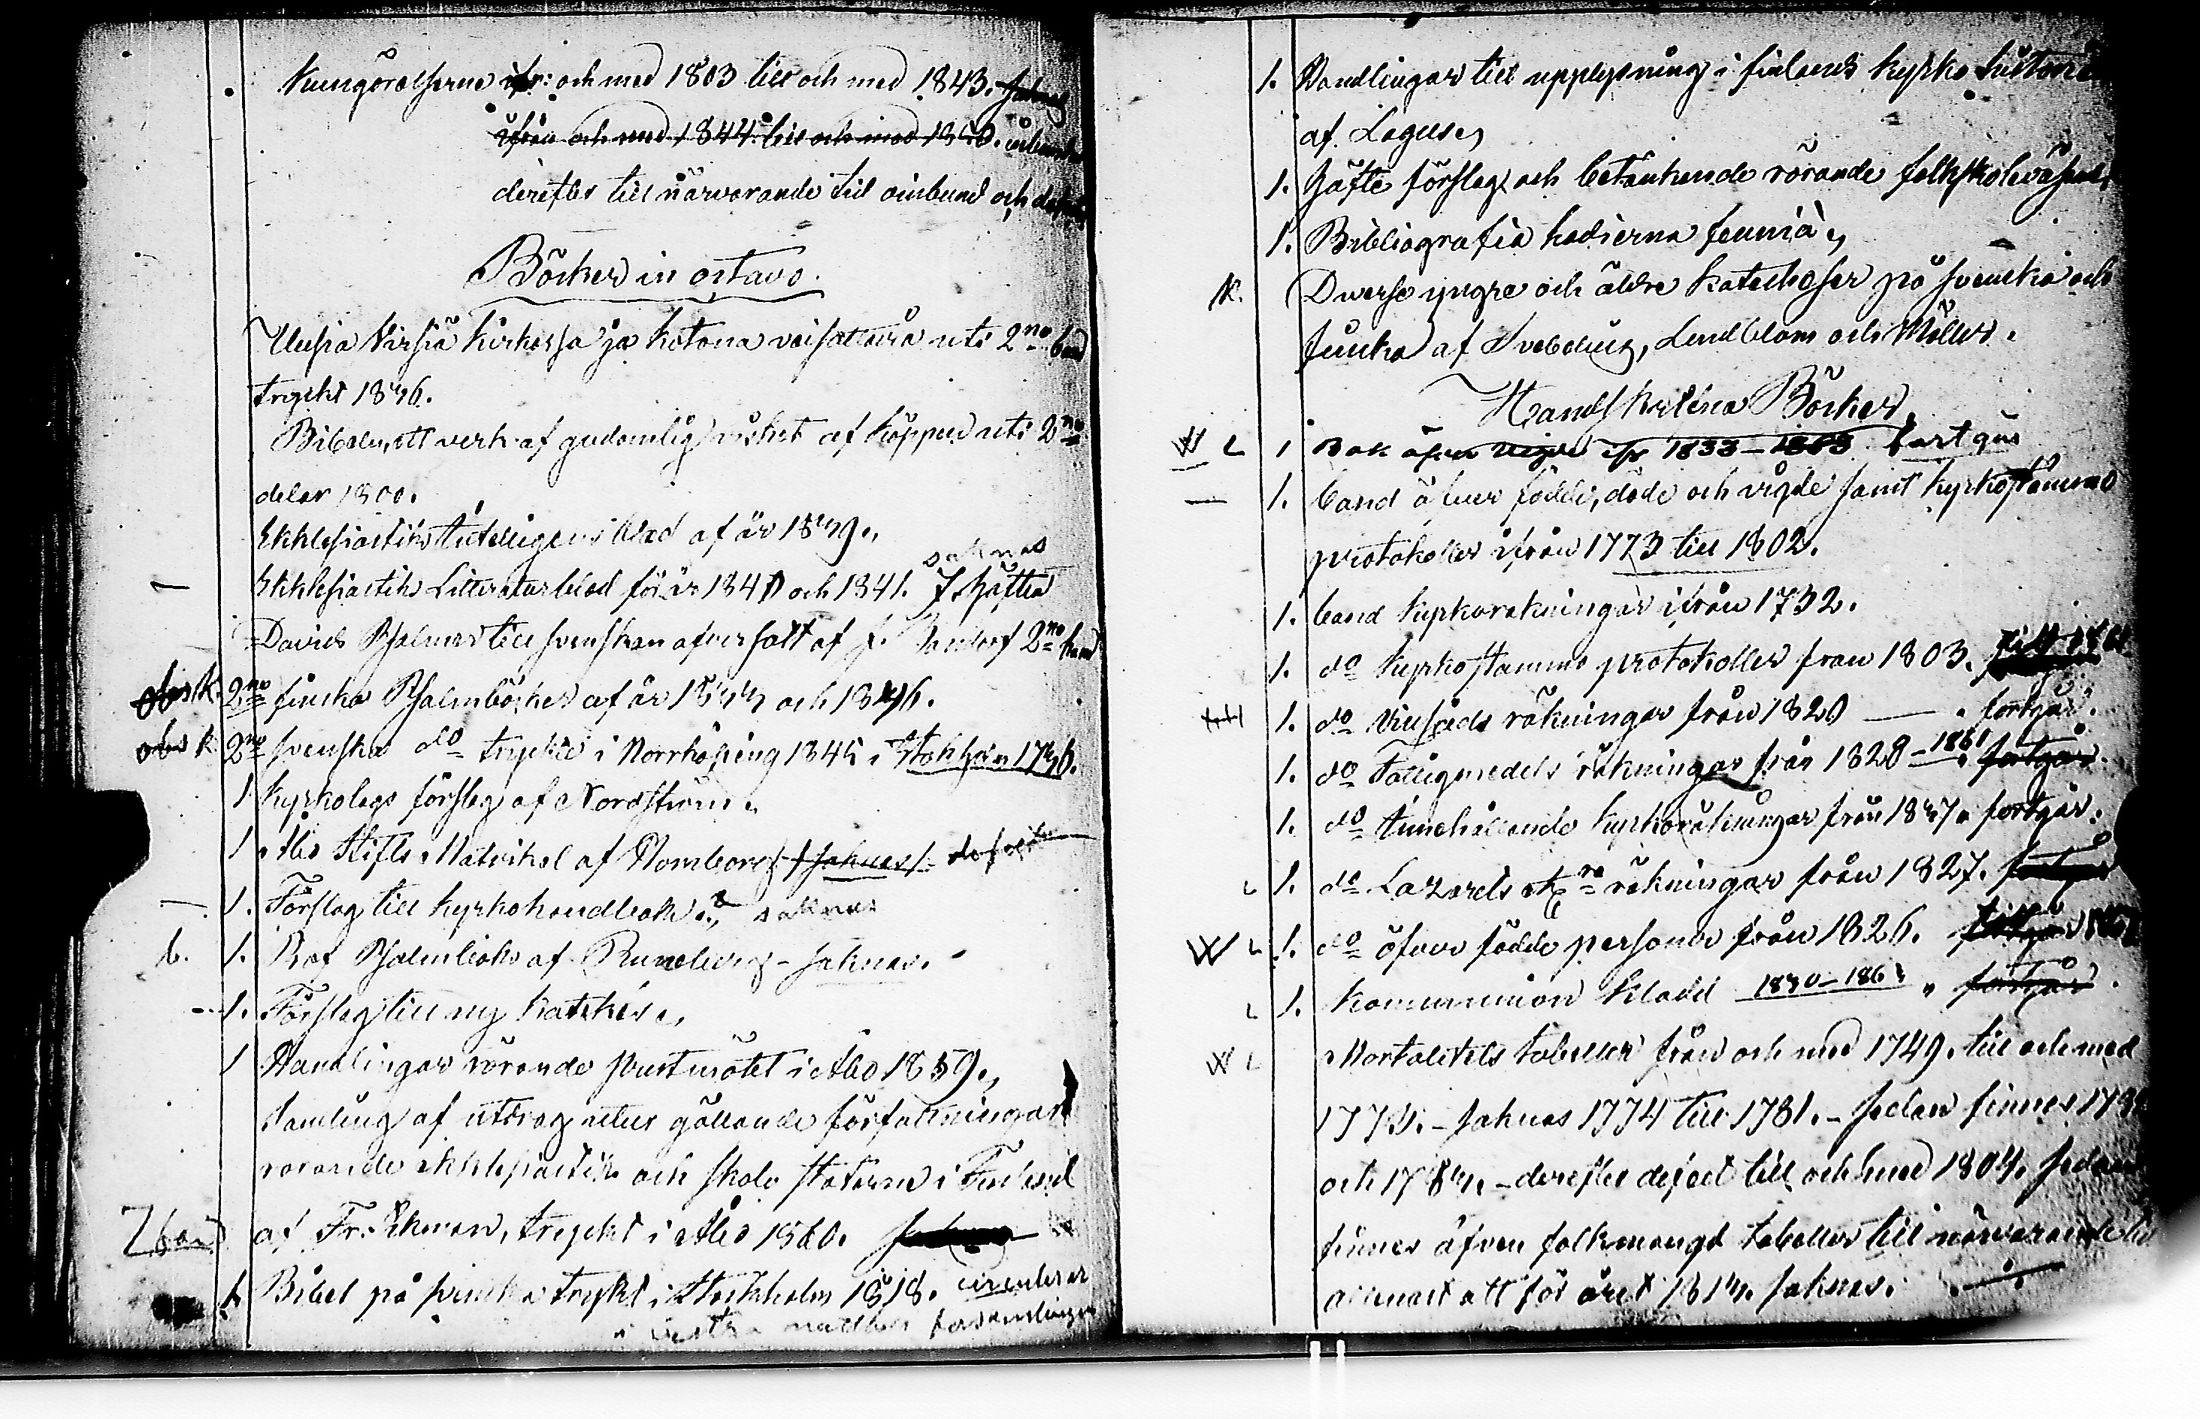 Kungörelserne ifr: och med 1803 till och med 1843. saknas
ifrån och med 1844 till och med 1850. inbundne
derefter till närvarande tid oinbund och
Böcker in octavo.
Uusia Virsiä kirkossa ja kotona veisattavia uti 2no band
tryckt 1836.
Bibeln, ett verk af gudomlig vishet af Köppen uti 2ne
delar 1800.
Ekklesiastik Intelligens blad af år 1839.
saknas
Ekklesiastik Litteraturblad för år 1840 och 1841. 7 häften
Davids Psalmer till svenskan öfversatt af F. 2no band
obs k. 2no finska Psalmböcker af år 1833 och 1836.
obs k 2no svenska do tryckte i Norrköping 1845 i Stokholm 1736.
1 Kyrkolags förslag af Nordström.
1 Åbo Stifts Matrikel af Wornborg / saknas / defect
1. Förslag till kyrkohandbok. 2 saknas
b. 1. Prof Psalmbok af Runeberg - saknas.
1. Förslag till ny katekes.
1 Handlingar rörande prestmötet i Åbo 1859.
Samling af utdrag utur gällande författningar
rörande ekklesiastik och skolo staterna i Finland
7 band af Fr. Ekman, tryckt i Åbo 1860. saknas
1. Bibel på finska tryckt i Stockholm 1818. cirulerar
i östra nattbes församlingar
1. Handlingar till upplysning i finlands kyrko historia
af Lagus.
1. Häfte förslag och betänkende rörande folkskoleväsend
1. Bibliografia hodierna fennia.
k. Diverse yngre och äldre katekeser på svenska och
finska af Svebelius, Lindblom och Möller.
Handskrifna Böcker.
W L 1 Bok öfver vigde ifr 1833 – 1863 fortgår
1. band öfver födde, döde och vigde samt kyrkostämmo
protokoller ifrån 1773 till 1802.
1. band kyrkoräkningar ifrån 1732.
1. do kyrkostämmo protokoller från 1803. till 1861
1. do Vinsäds räkningar från 1820 — fortgår.
1. do Fattigmedels räkningar från 1828 – 1861 fortgår.
1. do innehållande kyrkoräkningar från 1837. fortgår.
L 1. do Lazarets etc ra räkningar från 1827. fortgår
W L 1. do öfver födde personer från 1826. fortgår
L 1. Komunnion kladd 1830–1863 „ fortgår.
W L Mortalitets tabeller från och med 1749. till och med
1773. – saknas 1774 till 1781. – sedan finnes 1782
och 1783. – derefter defect till och med 1804. sedan
finnes äfven folkmängd tabeller till närvarande tid
allenast att för året 1813. saknas.